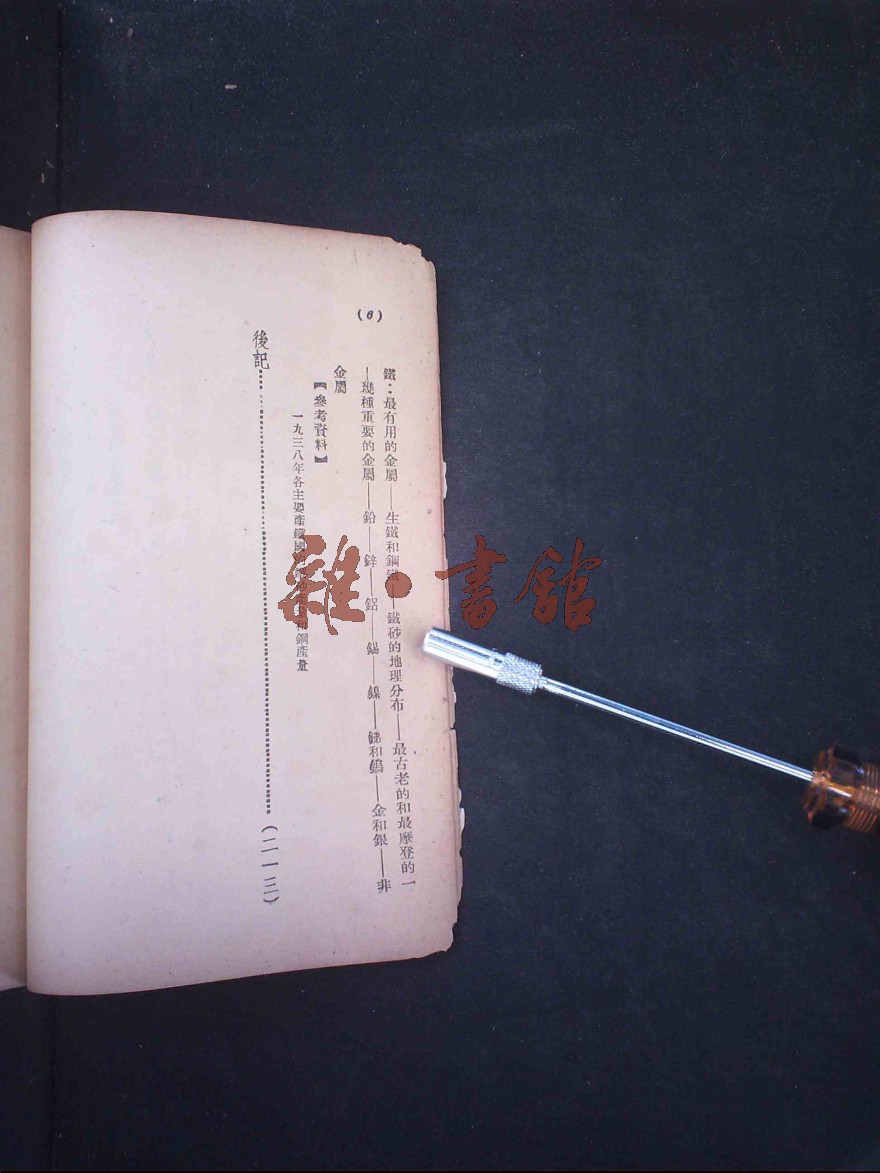 (6)
鐵：最有用的金屬——生鐵和鋼鐵——鐵砂的地理分布——最古老的和最摩登的一
—幾種重要的金屬——鉛——鋅——鋁——錫——鎳——銻和鎢——金和銀——非
金屬
【參考資料】
一九三八年各主要產鐵國 和鋼產量
後記……(二一三)
雜·書館